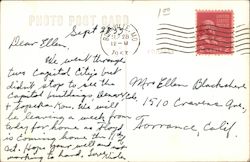 PHOTO POST CARD
1 00
Sept 28 39.
Dear Ellen,
We went through
two Capitol Citys but
didn't stop to see the
Capitol buildings
& Topeka Kan. We will
be leaving a week from
today for home as
is coming home the
Oct. Hope your well and not
working to hard. Love
Mrs Ellen Blackshere
1510 Cravens Ave,
Torrance, Calif.
12-M